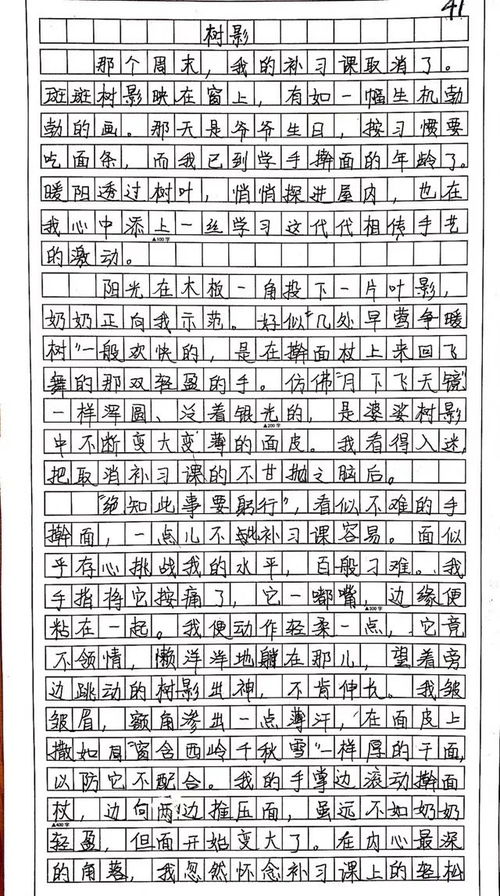 41
树影
那个周末，我的补习课取消了。
斑斑树影映在窗上，有如一幅生机勃
勃的画。那天是爷爷生日，按习惯要
吃面条，而我已到学手擀面的年龄了。
暖阳透过树叶，悄悄探进屋内，也在
我心中添上一丝学习这代代相传手艺
▲100字
的激动。
阳光在木板一角投下一片叶影，
奶奶正向我示范。好似“几处早莺争暖
树”一般欢快的，是在擀面杖上来回飞
舞的那双轻盈的手。仿佛“月下飞天镜”
一样浑圆、泛着银光的，是婆娑树影
▲200字
中不断变大变薄的面皮。我看得入迷，
把取消补习课的不甘抛之脑后。
“绝知此事要躬行”，看似不难的手
擀面，一点儿不比补习课容易。面似
乎存心挑战我的水平，百般刁难。我
手指将它按痛了，它一嘟嘴，边缘便
▲300字
粘在一起。我便动作轻柔一点，它竟
不领情，懒洋洋地躺在那儿，望着旁
边跳动的树影出神，不肯伸长。我皱
皱眉，额角渗出一点薄汗，在面皮上
撒如同“窗含西岭千秋雪”一样厚的干面，
以防它不配合。我的手掌边滚动擀面
杖，边向两边推压面，虽远不如奶奶
▲400字
轻盈，但面开始变大了。在内心最深
的角落，我忽然怀念补习课上的轻松